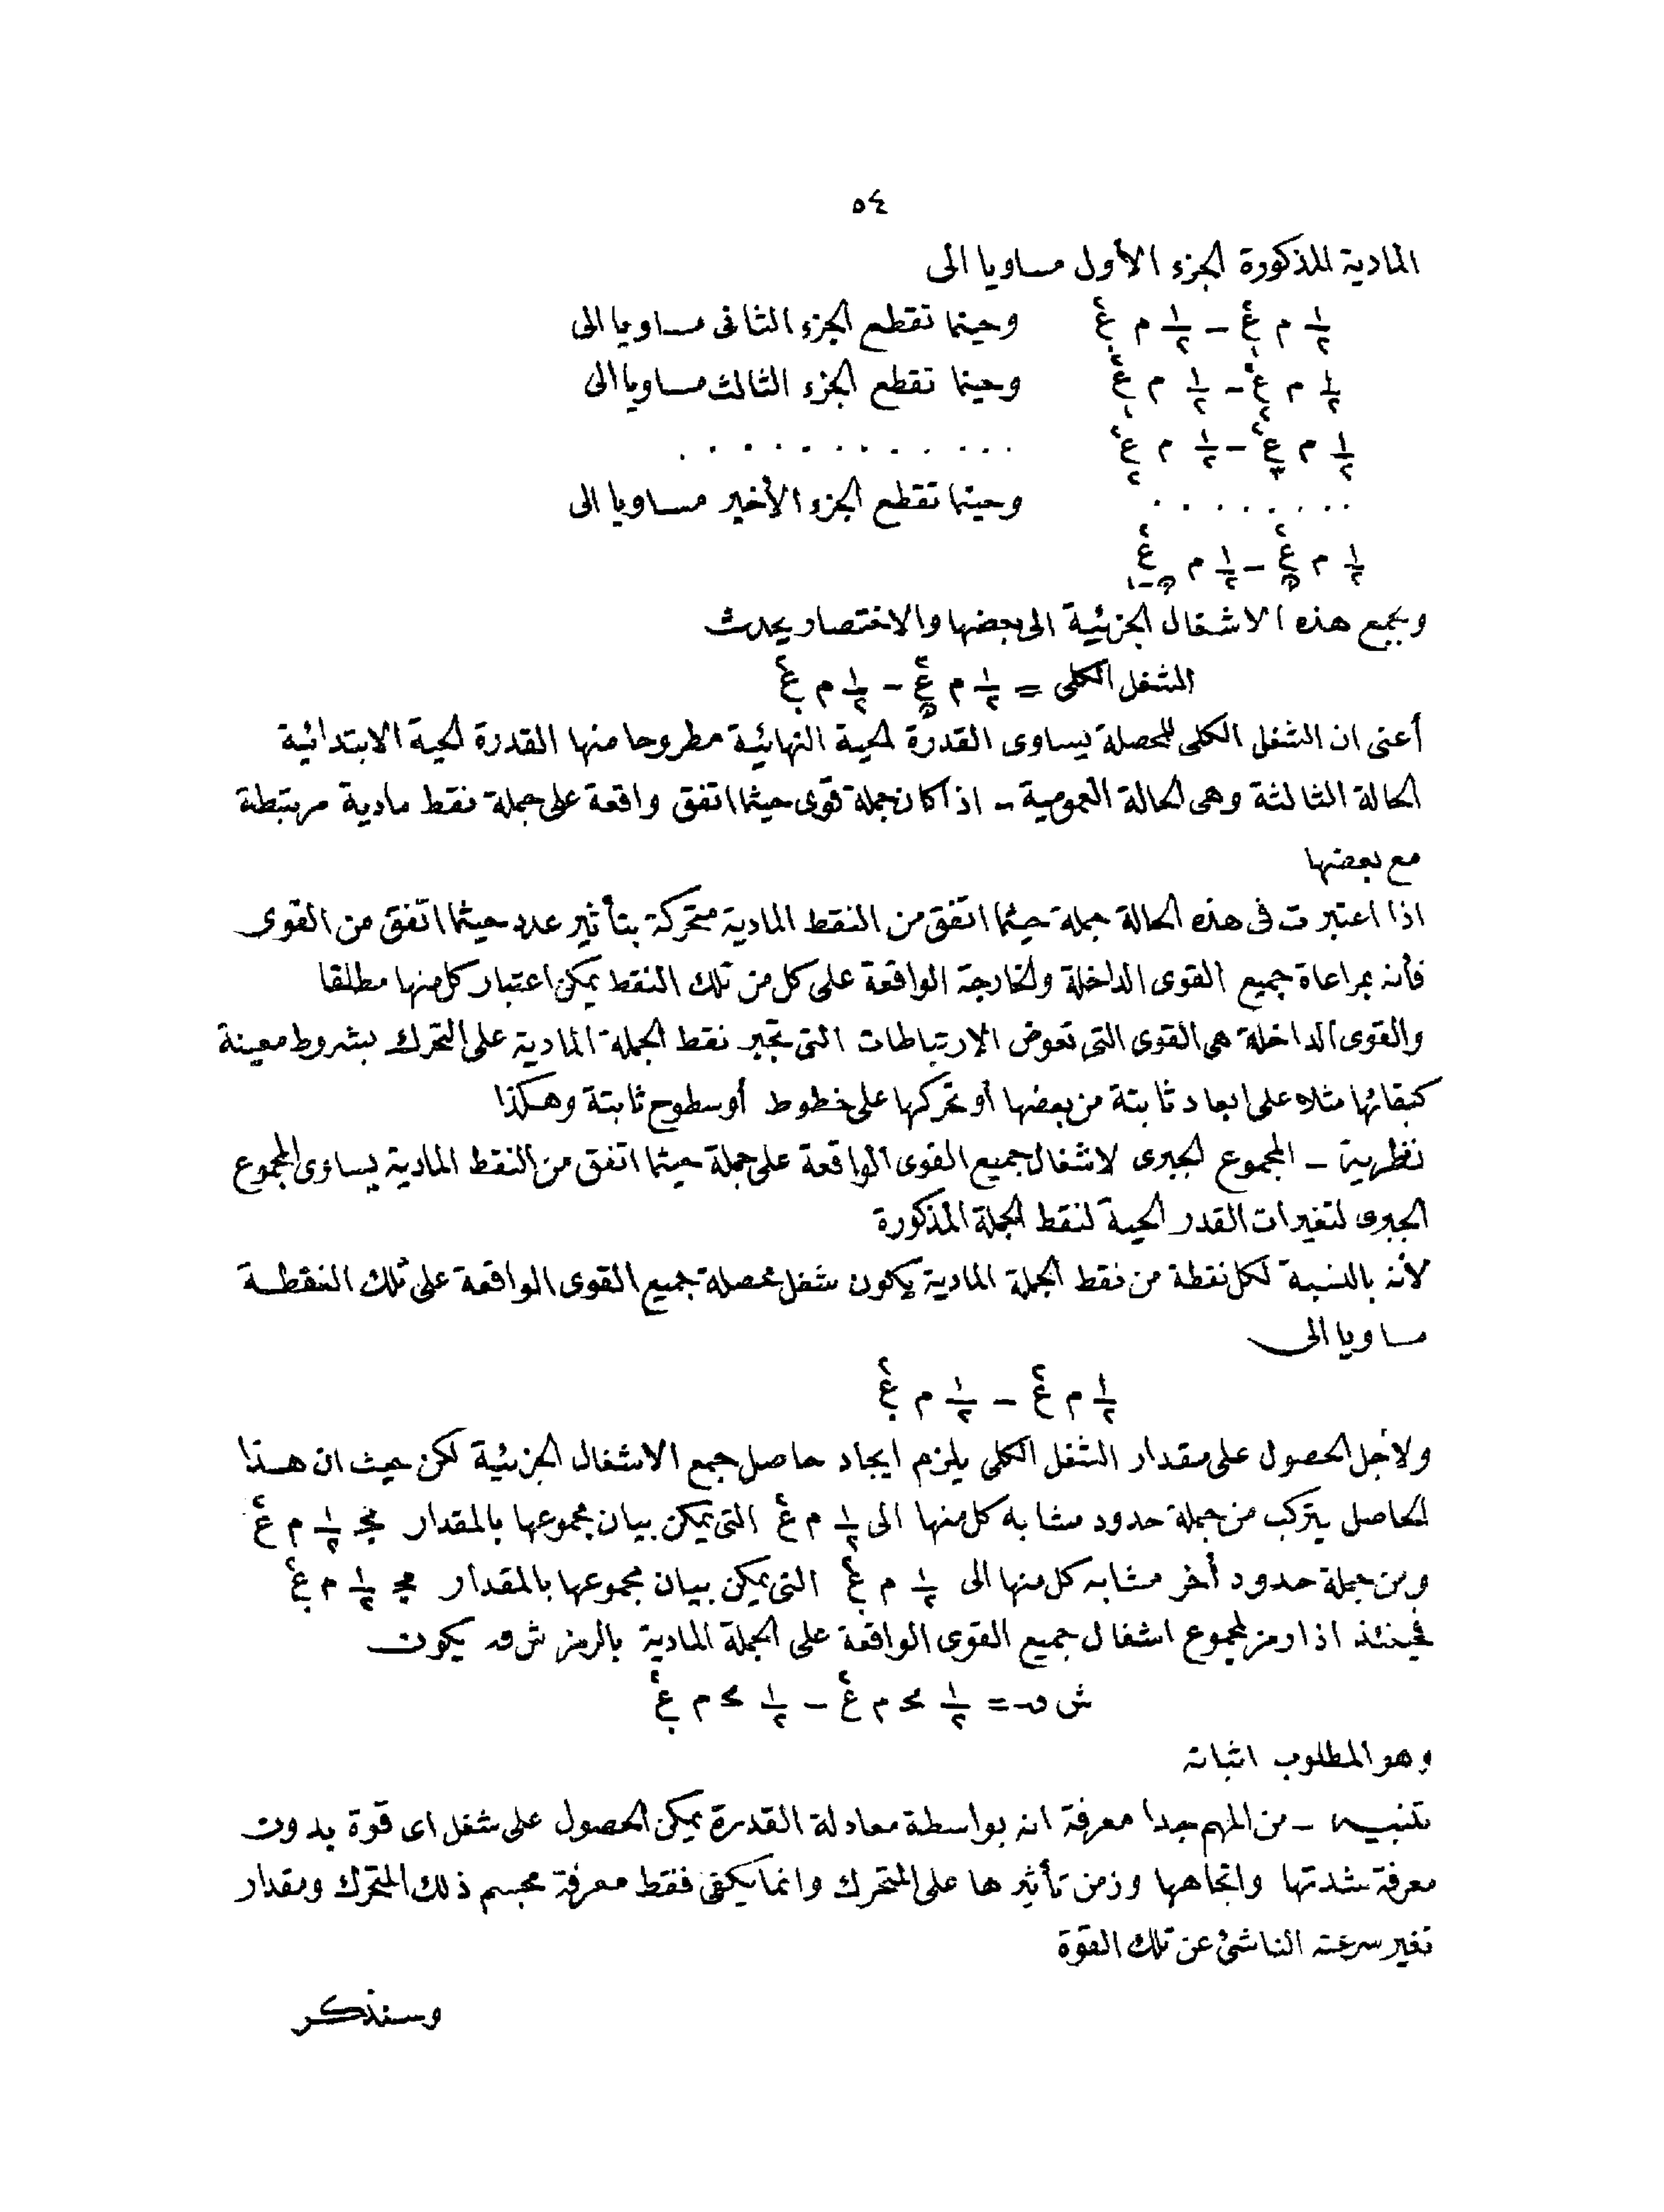 ٥٤
المادية المذكورة الجزء الأول مساويا الى
١/٢ م ع١² – ١/٢ م ع.² وحينما تقطع الجزء الثانى مساويا الى
١/٢ م ع٢² – ١/٢ م ع١² وحينما تقطع الجزء الثالث مساويا الى
١/٢ م ع٣² – ١/٢ م ع٢² . . . . . . . . . . . .
. . . . . . . . وحينما تقطع الجزء الأخير مساويا الى
١/٢ م عن² – ١/٢ م عن-١²
وبجمع هذه الاشغال الجزئية الى بعضها والاختصار يحدث
الشغل الكلى = ١/٢ م عن² – ١/٢ م ع.²
أعنى ان الشغل الكلى للمحصلة يساوى القدرة الحية النهائية مطروحا منها القدرة الحية الابتدائية
الحالة الثالثة وهى الحالة العمومية – اذا كان جملة قوى حيثما اتفق واقعة على جملة نقط مادية مرتبطة
مع بعضها
اذا اعتبرت فى هذه الحالة جملة حيثما اتفق من النقط المادية متحركة بتأثير عدد حيثما اتفق من القوى
فأنه بمراعاة جميع القوى الداخلة والخارجة الواقعة على كل من تلك النقط يمكن اعتبار كل منها مطلقا
والقوى الداخلة هى القوى التى تعوض الارتباطات التى تجبر نقط الجملة المادية على التحرك بشروط معينة
كبقائها مثلا على ابعاد ثابتة من بعضها أو تحركها على خطوط أو سطوح ثابتة وهكذا
نظرية – المجموع الجبرى لاشغال جميع القوى الواقعة على جملة حيثما اتفق من النقط المادية يساوى المجموع
الجبرى لتغيرات القدر الحية لنقط الجملة المذكورة
لأنه بالنسبة لكل نقطة من نقط الجملة المادية يكون شغل محصلة جميع القوى الواقعة على تلك النقطة
مساويا الى
١/٢ م ع² – ١/٢ م ع.²
ولأجل الحصول على مقدار الشغل الكلى يلزم ايجاد حاصل جمع الاشغال الجزئية لكن حيث ان هذا
الحاصل يتركب من جملة حدود مشابه كل منها الى ١/٢ م ع² التى يمكن بيان مجموعها بالمقدار مج ١/٢ م ع²
ومن جملة حدود أخر مشابه كل منها الى ١/٢ م ع.² التى يمكن بيان مجموعها بالمقدار مج ١/٢ م ع.²
فحينئذ اذا رمز لمجموع اشغال جميع القوى الواقعة على الجملة المادية بالرمز ش ق يكون
ش ق = ١/٢ مج م ع² – ١/٢ مج م ع.²
وهو المطلوب اثباته
تنبيه – من المهم جدا معرفة انه بواسطة معادلة القدرة يمكن الحصول على شغل اى قوة بدون
معرفة شدتها واتجاهها وزمن تأثيرها على المتحرك وانما يكفى فقط معرفة مجسم ذلك المتحرك ومقدار
تغير سرعته الناشئ عن تلك القوة
وسنذكر